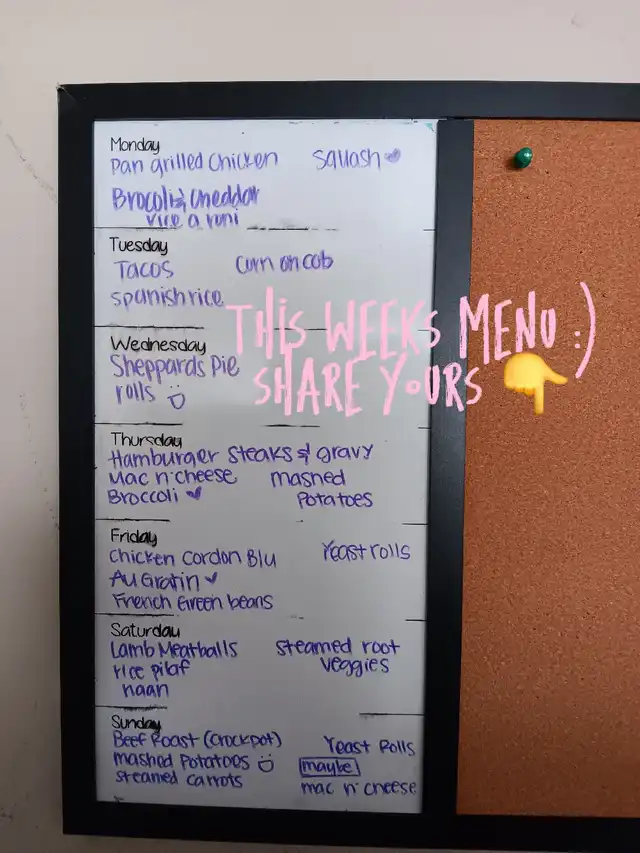 Monday
Pan grilled Chicken Squash
Brocoli & Cheddar
rice a roni
Tuesday
Tacos Corn on cob
Spanish rice
THIS WEEKS MENU :)
SHARE YOURS 👇
Wednesday
Sheppards Pie
rolls
Thursday
Hamburger Steaks & gravy
Mac n' cheese mashed
Broccoli Potatoes
Friday
Chicken Cordon Blu Yeast rolls
Au Gratin
French Green beans
Saturday
Lamb Meatballs steamed root
rice pilaf veggies
naan
Sunday
Beef Roast (Crockpot) Yeast Rolls
mashed Potatoes maybe
steamed carrots mac n' cheese